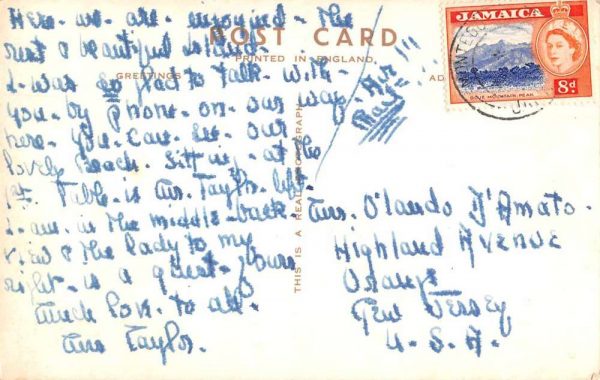 POST CARD
PRINTED IN ENGLAND.
GREETINGS
AD
THIS IS A REAL PHOTOGRAPH
JAMAICA
8d
BLUE MOUNTAIN PEAK
Here - we - are - enjoying - the
rest & beautiful island -
I - was so glad to talk - with -
you - by phone - on - our way -
here - you - can - see - our
lovely beach. Sitting - at the
1st. Table - is Mr. Taylor. left -
I - am - in the middle - back -
view & the lady to my
right - is a guest - yours
Much love - to all -
Mrs Taylor.
Air
Mail
!!!
Mrs. O'lando D'Amato -
Highland AVENUE
Orange
New Jersey
U. S. A.